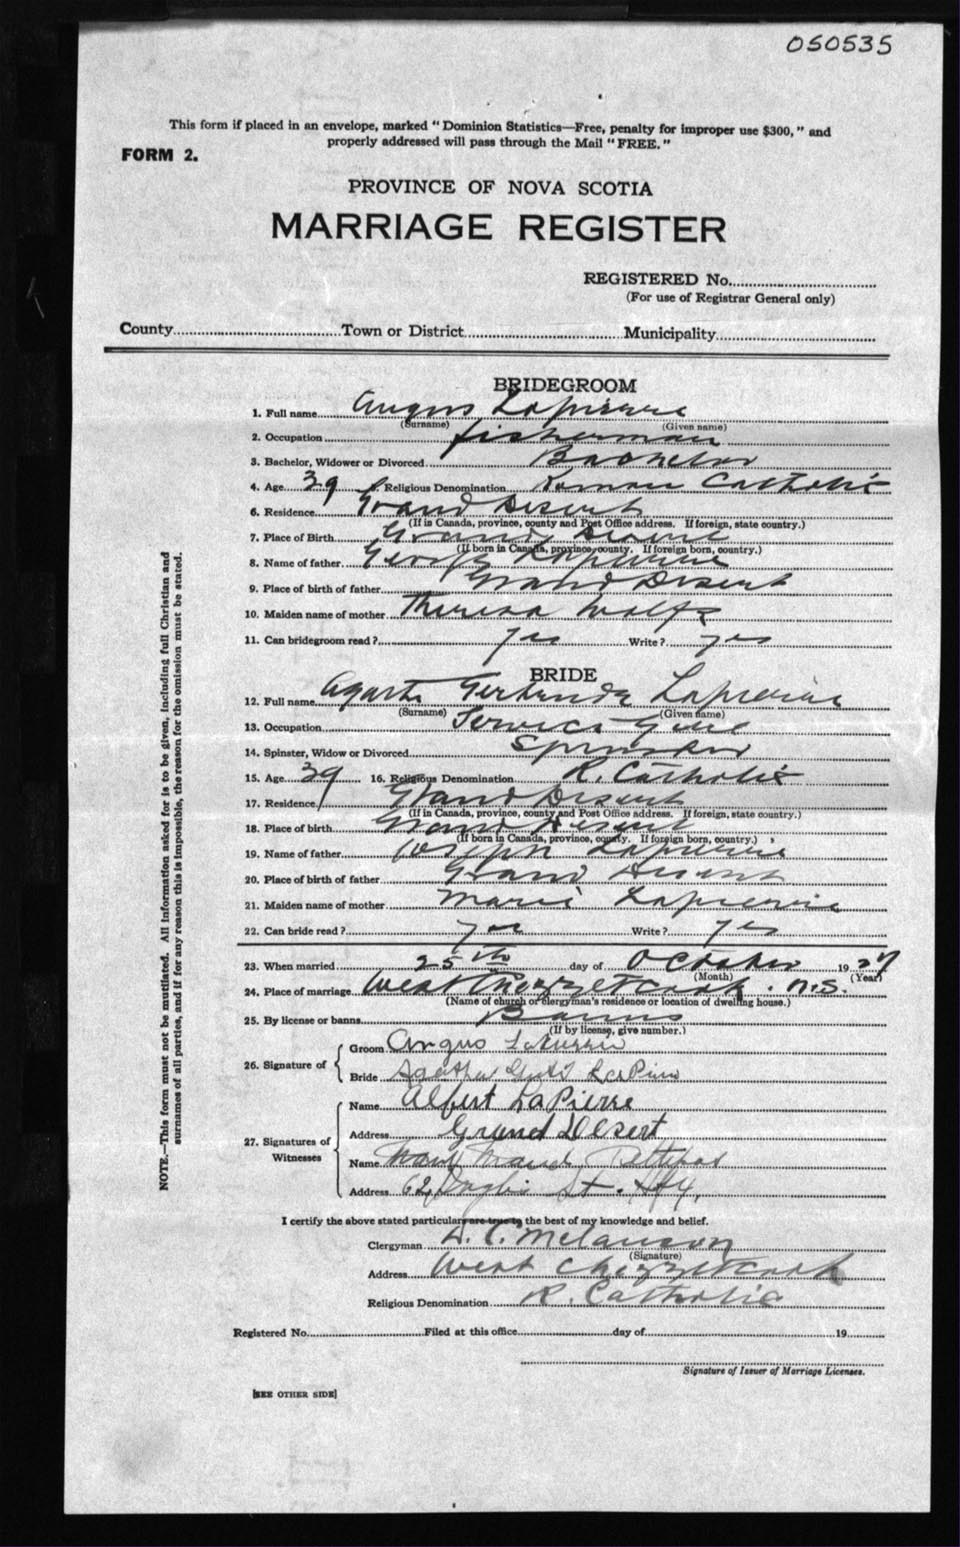 050535
This form if placed in an envelope, marked "Dominion Statistics—Free, penalty for improper use $300," and
properly addressed will pass through the Mail "FREE."
FORM 2.
PROVINCE OF NOVA SCOTIA
MARRIAGE REGISTER
REGISTERED No.
(For use of Registrar General only)
County Town or District Municipality
BRIDEGROOM
1. Full name Angus Lapierre
(Surname) (Given name)
2. Occupation fisherman
3. Bachelor, Widower or Divorced Bachelor
4. Age 39 Religious Denomination Roman Catholic
6. Residence Grand Desert
(If in Canada, province, county and Post Office address. If foreign, state country.)
7. Place of Birth Grand Desert
(If born in Canada, province, county. If foreign born, country.)
8. Name of father George Lapierre
9. Place of birth of father Grand Desert
10. Maiden name of mother Theresa Wolfe
11. Can bridegroom read? yes Write? yes
BRIDE
12. Full name Agartha Gertrude Lapierre
(Surname) (Given name)
13. Occupation Service Girl
14. Spinster, Widow or Divorced Spinster
15. Age 39 16. Religious Denomination R. Catholic
17. Residence Grand Desert
(If in Canada, province, county and Post Office address. If foreign, state country.)
18. Place of birth Grand Desert
(If born in Canada, province, county. If foreign born, country.)
19. Name of father Joseph Lapierre
20. Place of birth of father Grand Desert
21. Maiden name of mother Marie Lapierre
22. Can bride read? yes Write? yes
23. When married 25th day of October 19
(Month) (Year)
24. Place of marriage West Chezzetcook. N.S.
(Name of church or clergyman's residence or location of dwelling house.)
25. By license or banns Banns
(If by license, give number.)
26. Signature of
Groom Angus LaPierre
Bride Agatha LaPierre
27. Signatures of
Witnesses
Name Albert LaPierre
Address Grand Desert
Name Mary Maud Pettipas
Address 62 Inglis St. Hfx.
I certify the above stated particulars are true to the best of my knowledge and belief.
Clergyman Melanson
(Signature)
Address West Chezzetcook
Religious Denomination R. Catholic
Registered No. Filed at this office day of 19
Signature of Issuer of Marriage Licenses.
[SEE OTHER SIDE]
NOTE.—This form must not be mutilated. All information asked for is to be given, including full Christian and
surnames of all parties, and if for any reason this is impossible, the reason for the omission must be stated.